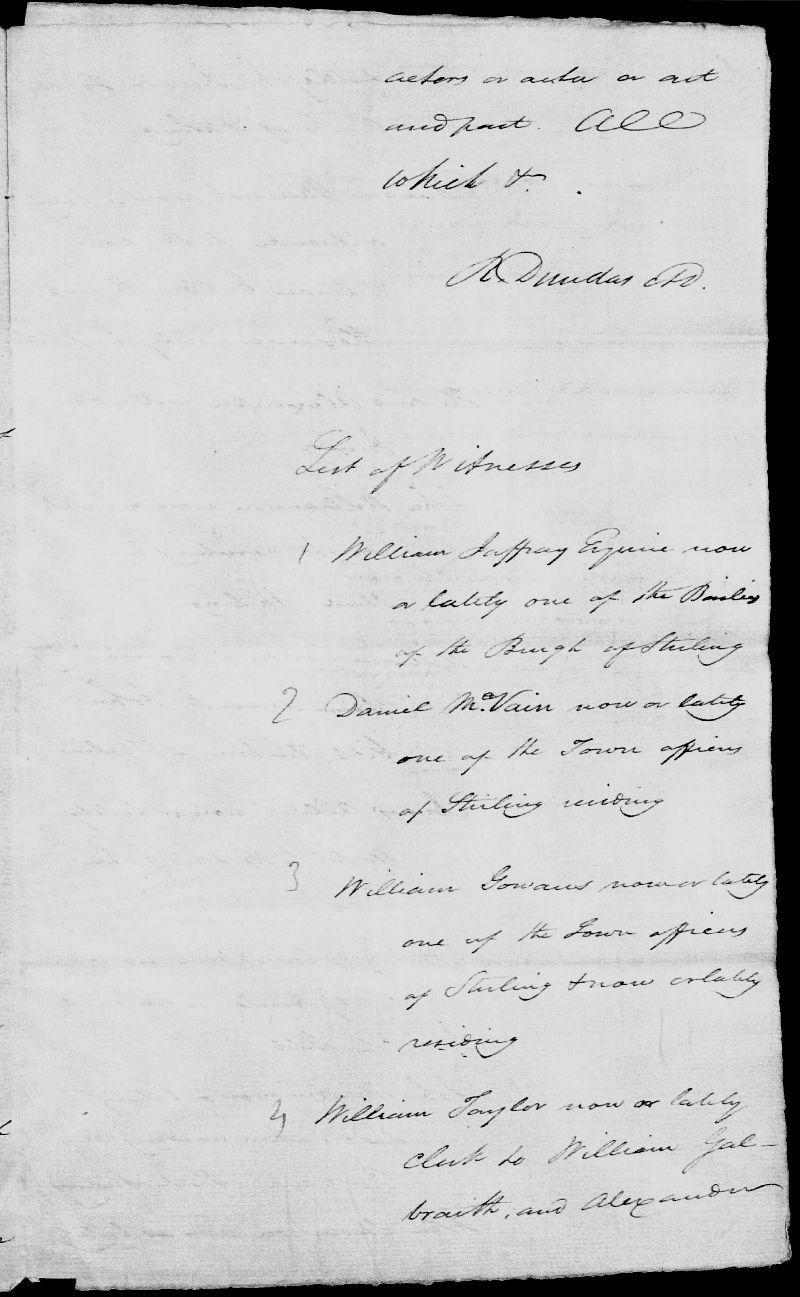 actors or actor or art
and part. All
which &c.
R. Dundas AD.
List of Witnesses
1 William Jaffray Esquire now
or lately one of the Bailies
of the Burgh of Stirling
2 Daniel McVain now or lately
one of the Town officers
of Stirling residing
3 William Gowans now or lately
one of the Town officers
of Stirling & now or lately
residing
4 William Taylor now or lately
clerk to William Gal-
braith, and Alexander